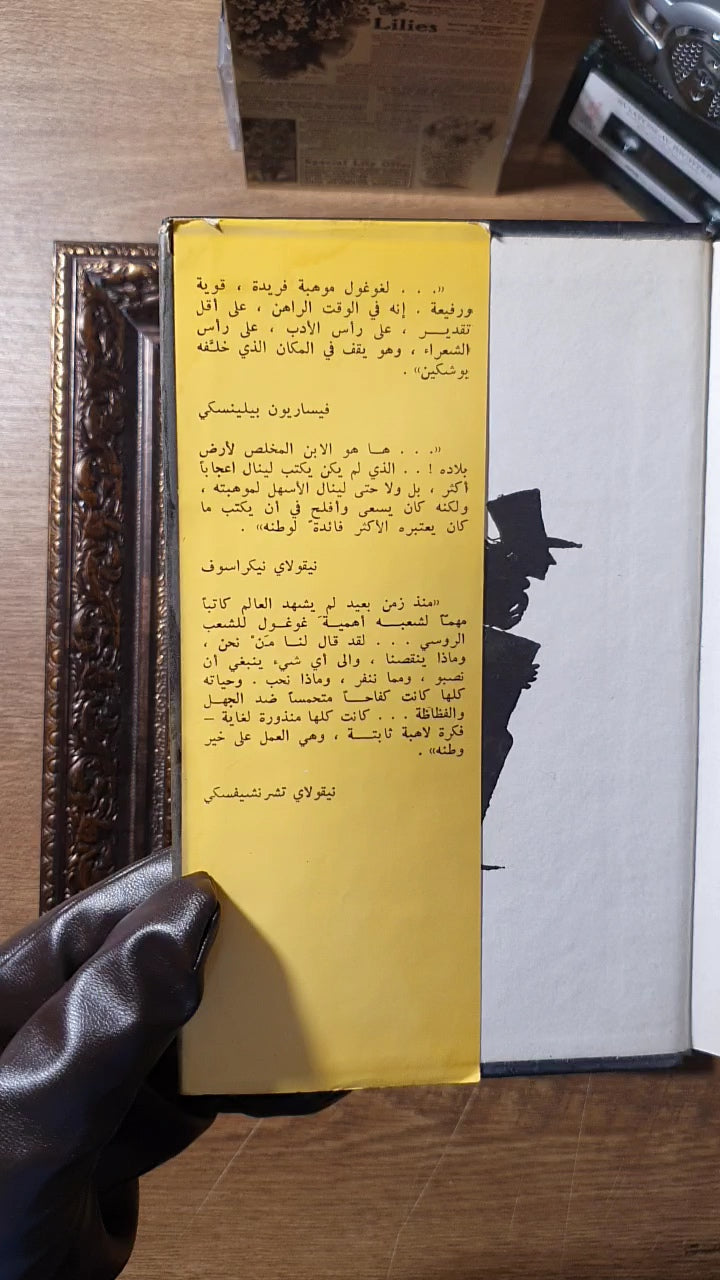 Lilies
Special Lily Offer
SVIATOSLAV RICHTER
«. . . لغوغول موهبة فريدة ، قوية
ورفيعة . إنه في الوقت الراهن ، على أقل
تقديــر ، على رأس الأدب ، على رأس
الشعراء ، وهو يقف في المكان الذي خلـّفه
بوشكين» .
فيساريون بيلينسكي
«. . . هـا هو الابن المخلص لأرض
بلاده ! . . الذي لم يكن يكتب لينال اعجاباً
أكثر ، بل ولا حتى لينال الأسهل لموهبته ،
ولكنه كان يسعى وأفلح في أن يكتب ما
كان يعتبره الأكثر فائدة لوطنه» .
نيقولاي نيكراسوف
«منذ زمن بعيد لم يشهد العالم كاتباً
مهماً لشعبـــه أهميـة غوغـول للشعب
الروسي . . . لقد قال لنــا مَنْ نحن ،
وماذا ينقصنا ، والى أي شيء ينبغي أن
نصبو ، ومما ننفر ، وماذا نحب . وحياته
كلها كانت كفاحــاً متحمساً ضد الجهـل
والفظاظة . . . كانت كلها منذورة لغاية –
فكرة لاهبة ثابتـــة ، وهي العمل على خير
وطنه» .
نيقولاي تشرنشيفسكي